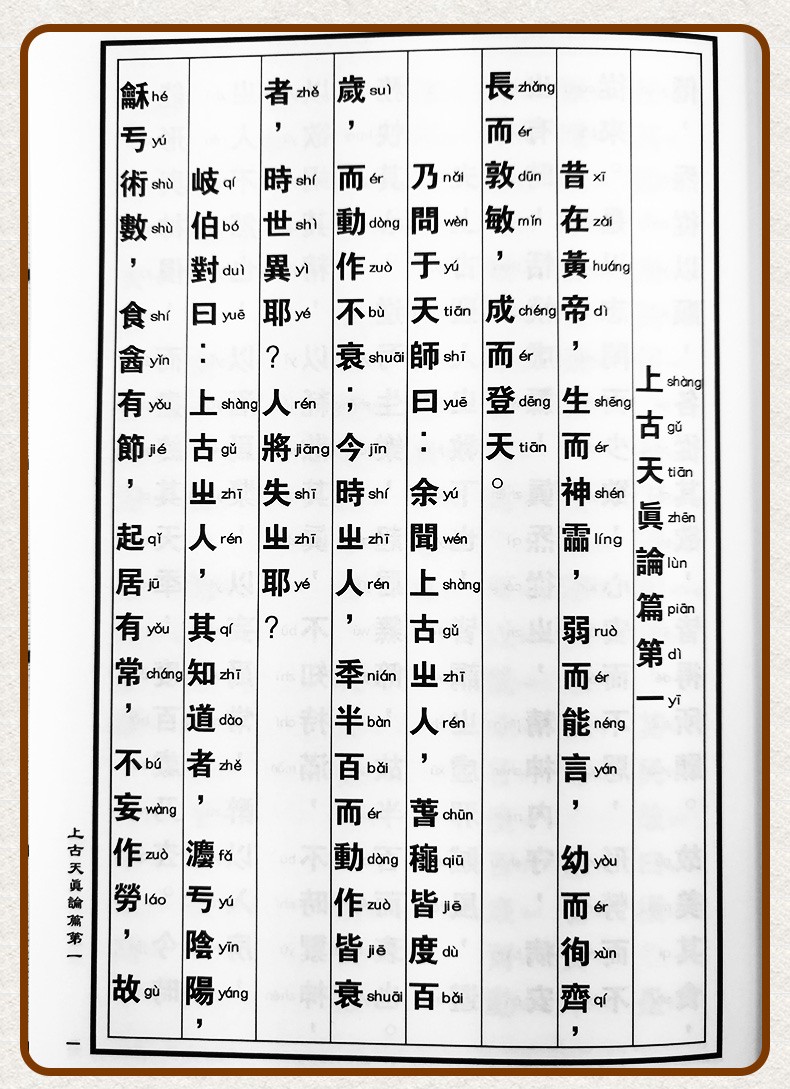 上古天眞論篇第一
shàng gǔ tiān zhēn lùn piān dì yī
昔在黃帝，生而神霝，弱而能言，幼而徇齊，
xī zài huáng dì shēng ér shén líng ruò ér néng yán yòu ér xùn qí
長而敦敏，成而登天。
zhǎng ér dūn mǐn chéng ér dēng tiān
乃問于天師曰：余聞上古㞢人，萅龝皆度百
nǎi wèn yú tiān shī yuē yú wén shàng gǔ zhī rén chūn qiū jiē dù bǎi
歲，而動作不衰；今時㞢人，秊半百而動作皆衰
suì ér dòng zuò bù shuāi jīn shí zhī rén nián bàn bǎi ér dòng zuò jiē shuāi
者，時世異耶？人將失㞢耶？
zhě shí shì yì yé rén jiāng shī zhī yé
岐伯對曰：上古㞢人，其知道者，灋亏陰陽，
qí bó duì yuē shàng gǔ zhī rén qí zhī dào zhě fǎ yú yīn yáng
龢亏術數，食酓有節，起居有常，不妄作勞，故
hé yú shù shù shí yǐn yǒu jié qǐ jū yǒu cháng bú wàng zuò láo gù
上古天眞論篇第一
一